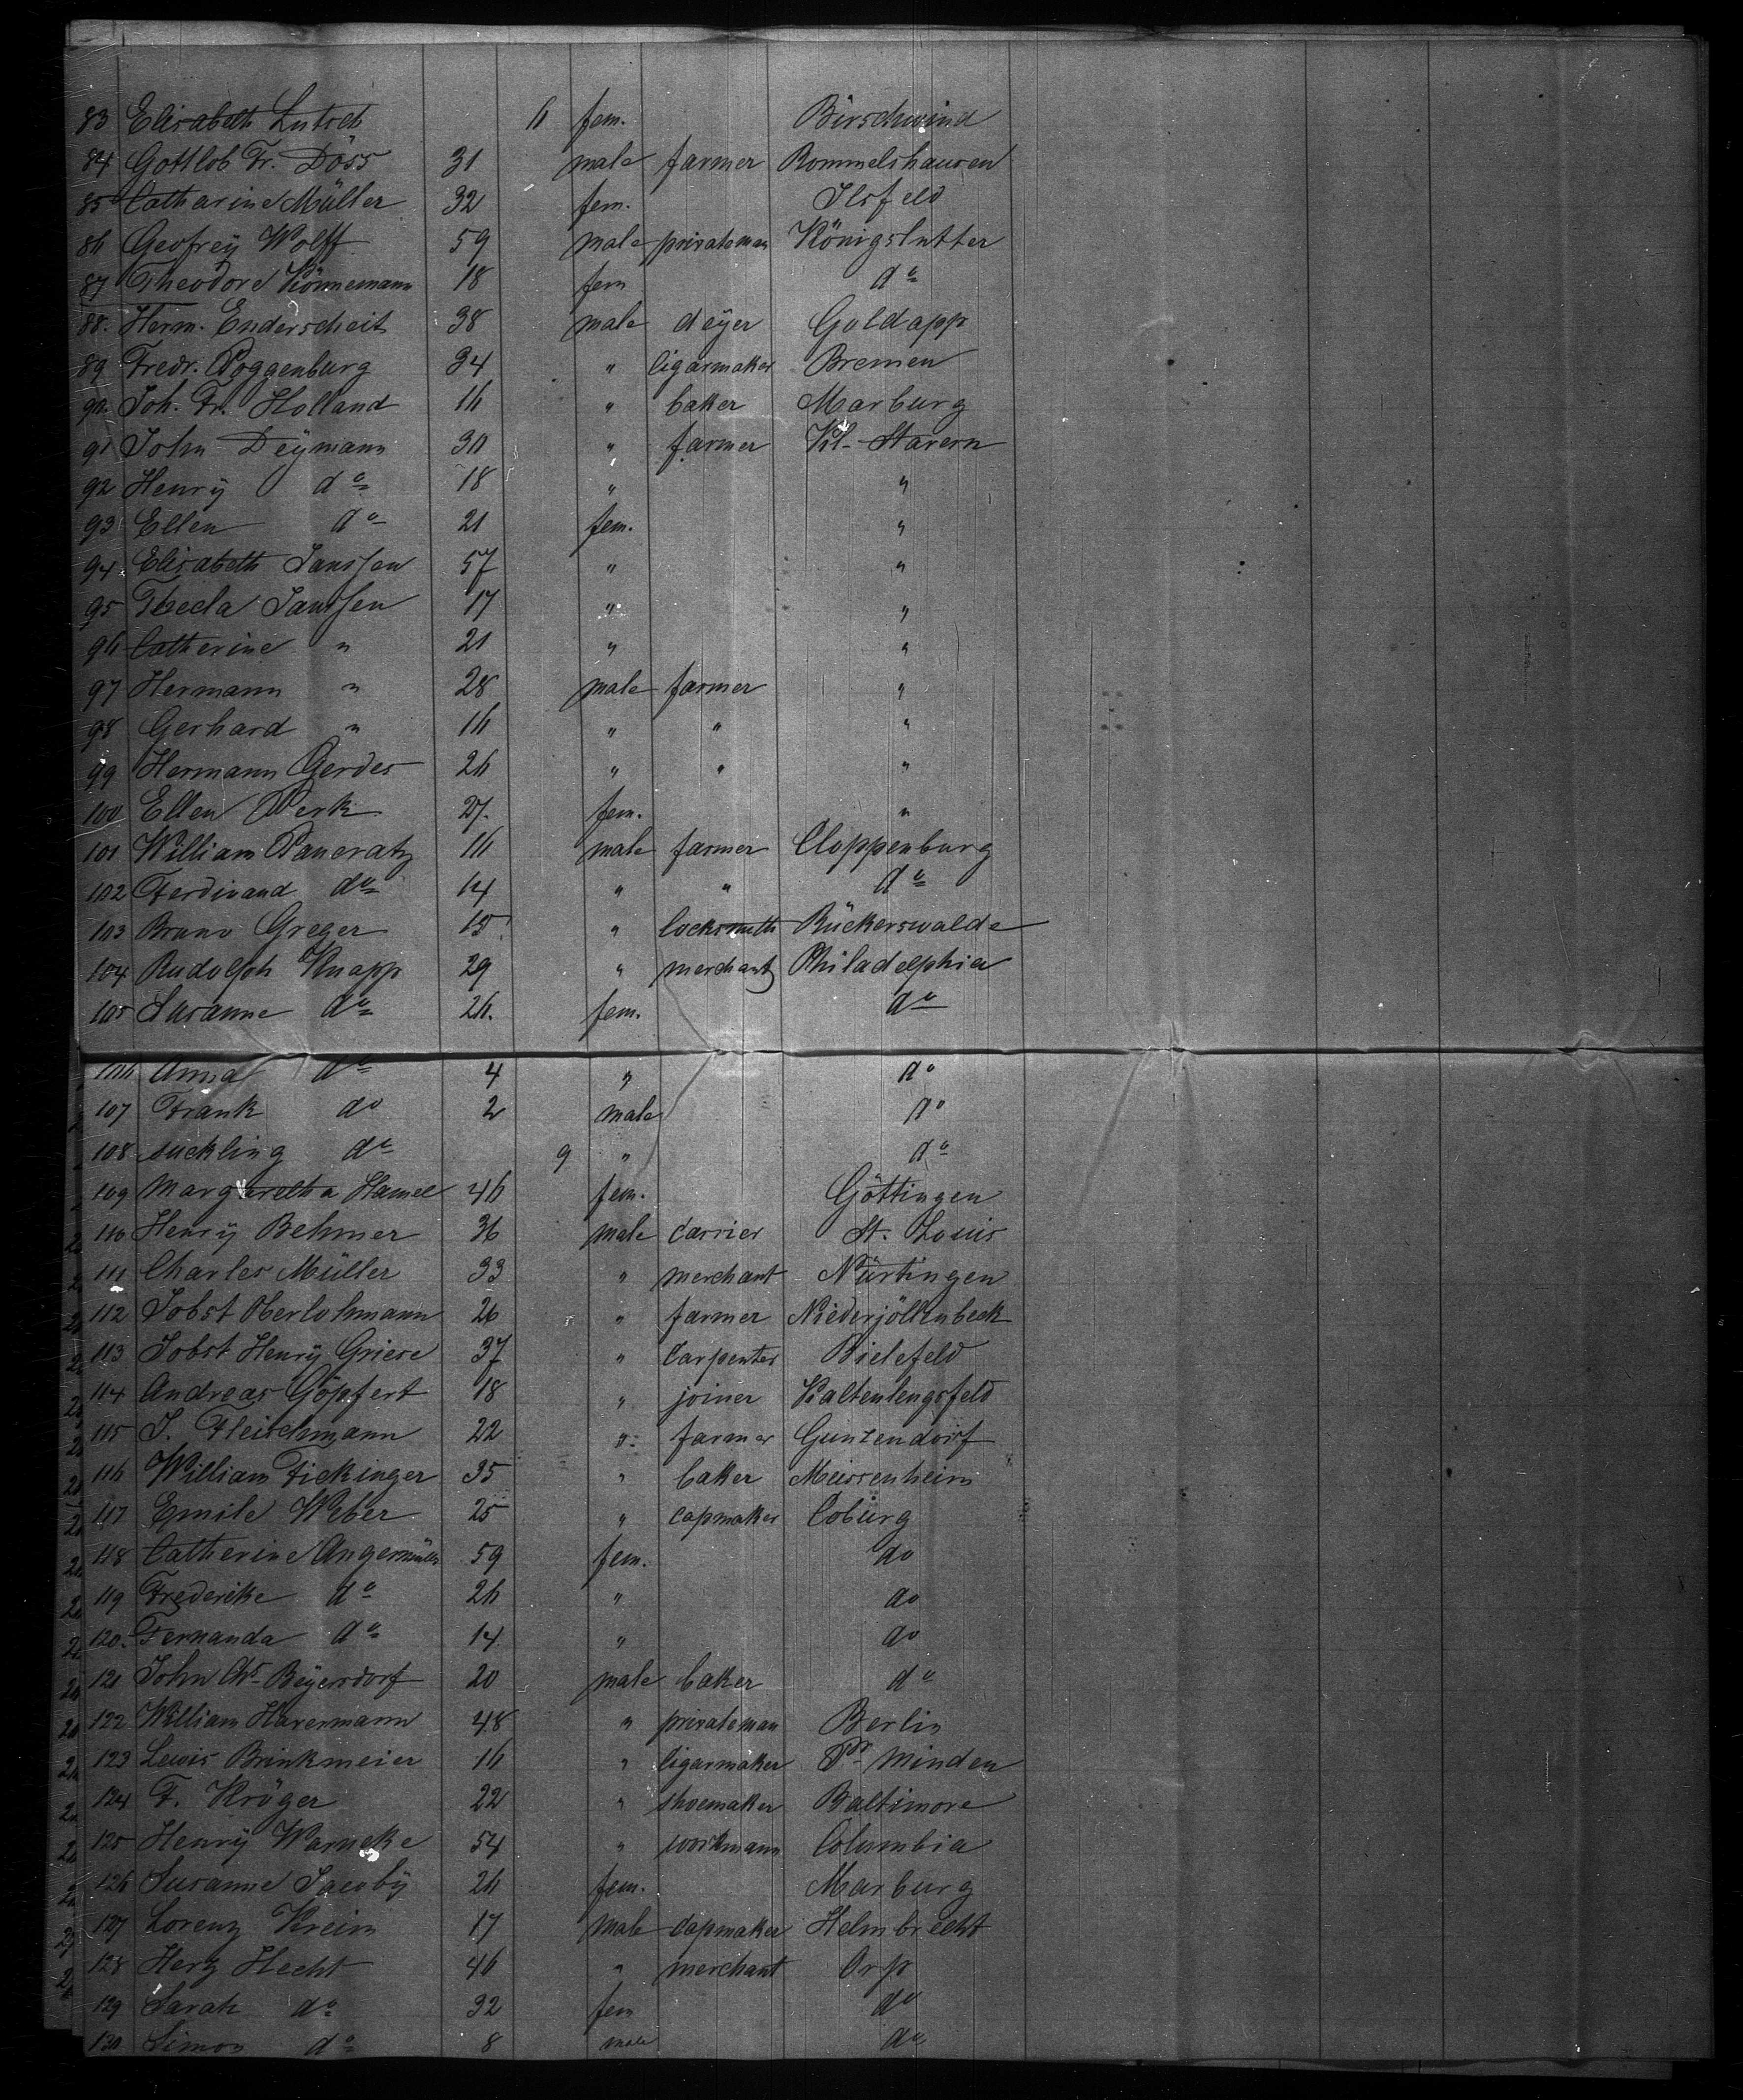 83 Elisabeth Lutsch 6 fem. Birschwind
84 Gottlob Fr. Döss 31 male farmer Rommelshausen
85 Catharine Müller 32 fem. Ilsfeld
86 Geofrey Wolff 59 male privateman Königslutter
87 Theodore Könnemann 18 fem do
88. Herm. Enderscheit 38 male deyer Goldapp
89 Fredr. Poggenburg 34 " Cigarmaker Bremen
90. Joh. Fr. Holland 16 " baker Marburg
91 John Deymann 30 " farmer Kl. Stavern
92 Henry do 18 " "
93 Ellen do 21 fem. "
94 Elisabeth Janssen 57 " "
95 Thecla Janssen 17 " "
96 Catherine " 21 " "
97 Hermann " 28 male farmer "
98 Gerhard " 16 " " "
99 Hermann Gerdes 26 " " "
100 Ellen Perk 27. fem. "
101 William Pancratz 16 male farmer Cloppenburg
102 Ferdinand do 14 " " do
103 Bruno Greger 15 " locksmith Rückerswalde
104 Rudolph Knapp 29 " merchant Philadelphia
105 Susanne do 26. fem. do
106 Anna do 4 " do
107 Frank do 2 male do
108 suckling do 9 " do
109 Margaretha Hamel 46 fem. Göttingen
110 Henry Behmer 36 male carrier St. Louis
111 Charles Müller 33 " merchant Nürtingen
112 Jobst Oberlohmann 26 " farmer Niederjöllenbeck
113 Jobst Henry Griese 37 " Carpenter Bielefeld
114 Andreas Göpfert 18 " joiner Kaltenlengsfeld
115 J. Fleischmann 22 " farmer Gunzendorf
116 William Fickinger 35 " baker Meissenheim
117 Emile Weber 25 " capmaker Coburg
118 Catherine Angermüller 59 fem. do
119 Frederike do 26 " do
120. Fernanda do 14 " do
121 John Chr. Beyersdorf 20 male baker do
122 William Havermann 48 " privateman Berlin
123 Lewis Brinkmeier 16 " Cigarmaker Pr. Minden
124 F. Kröger 22 " shoemaker Baltimore
125 Henry Warneke 54 " workmann Columbia
126 Susanne Jacoby 26 fem. Marburg
127 Lorenz Kreim 17 male capmaker Helmbrecht
128 Herz Hecht 46 " merchant Orp
129 Sarah do 32 fem do
130 Simon do 8 male do